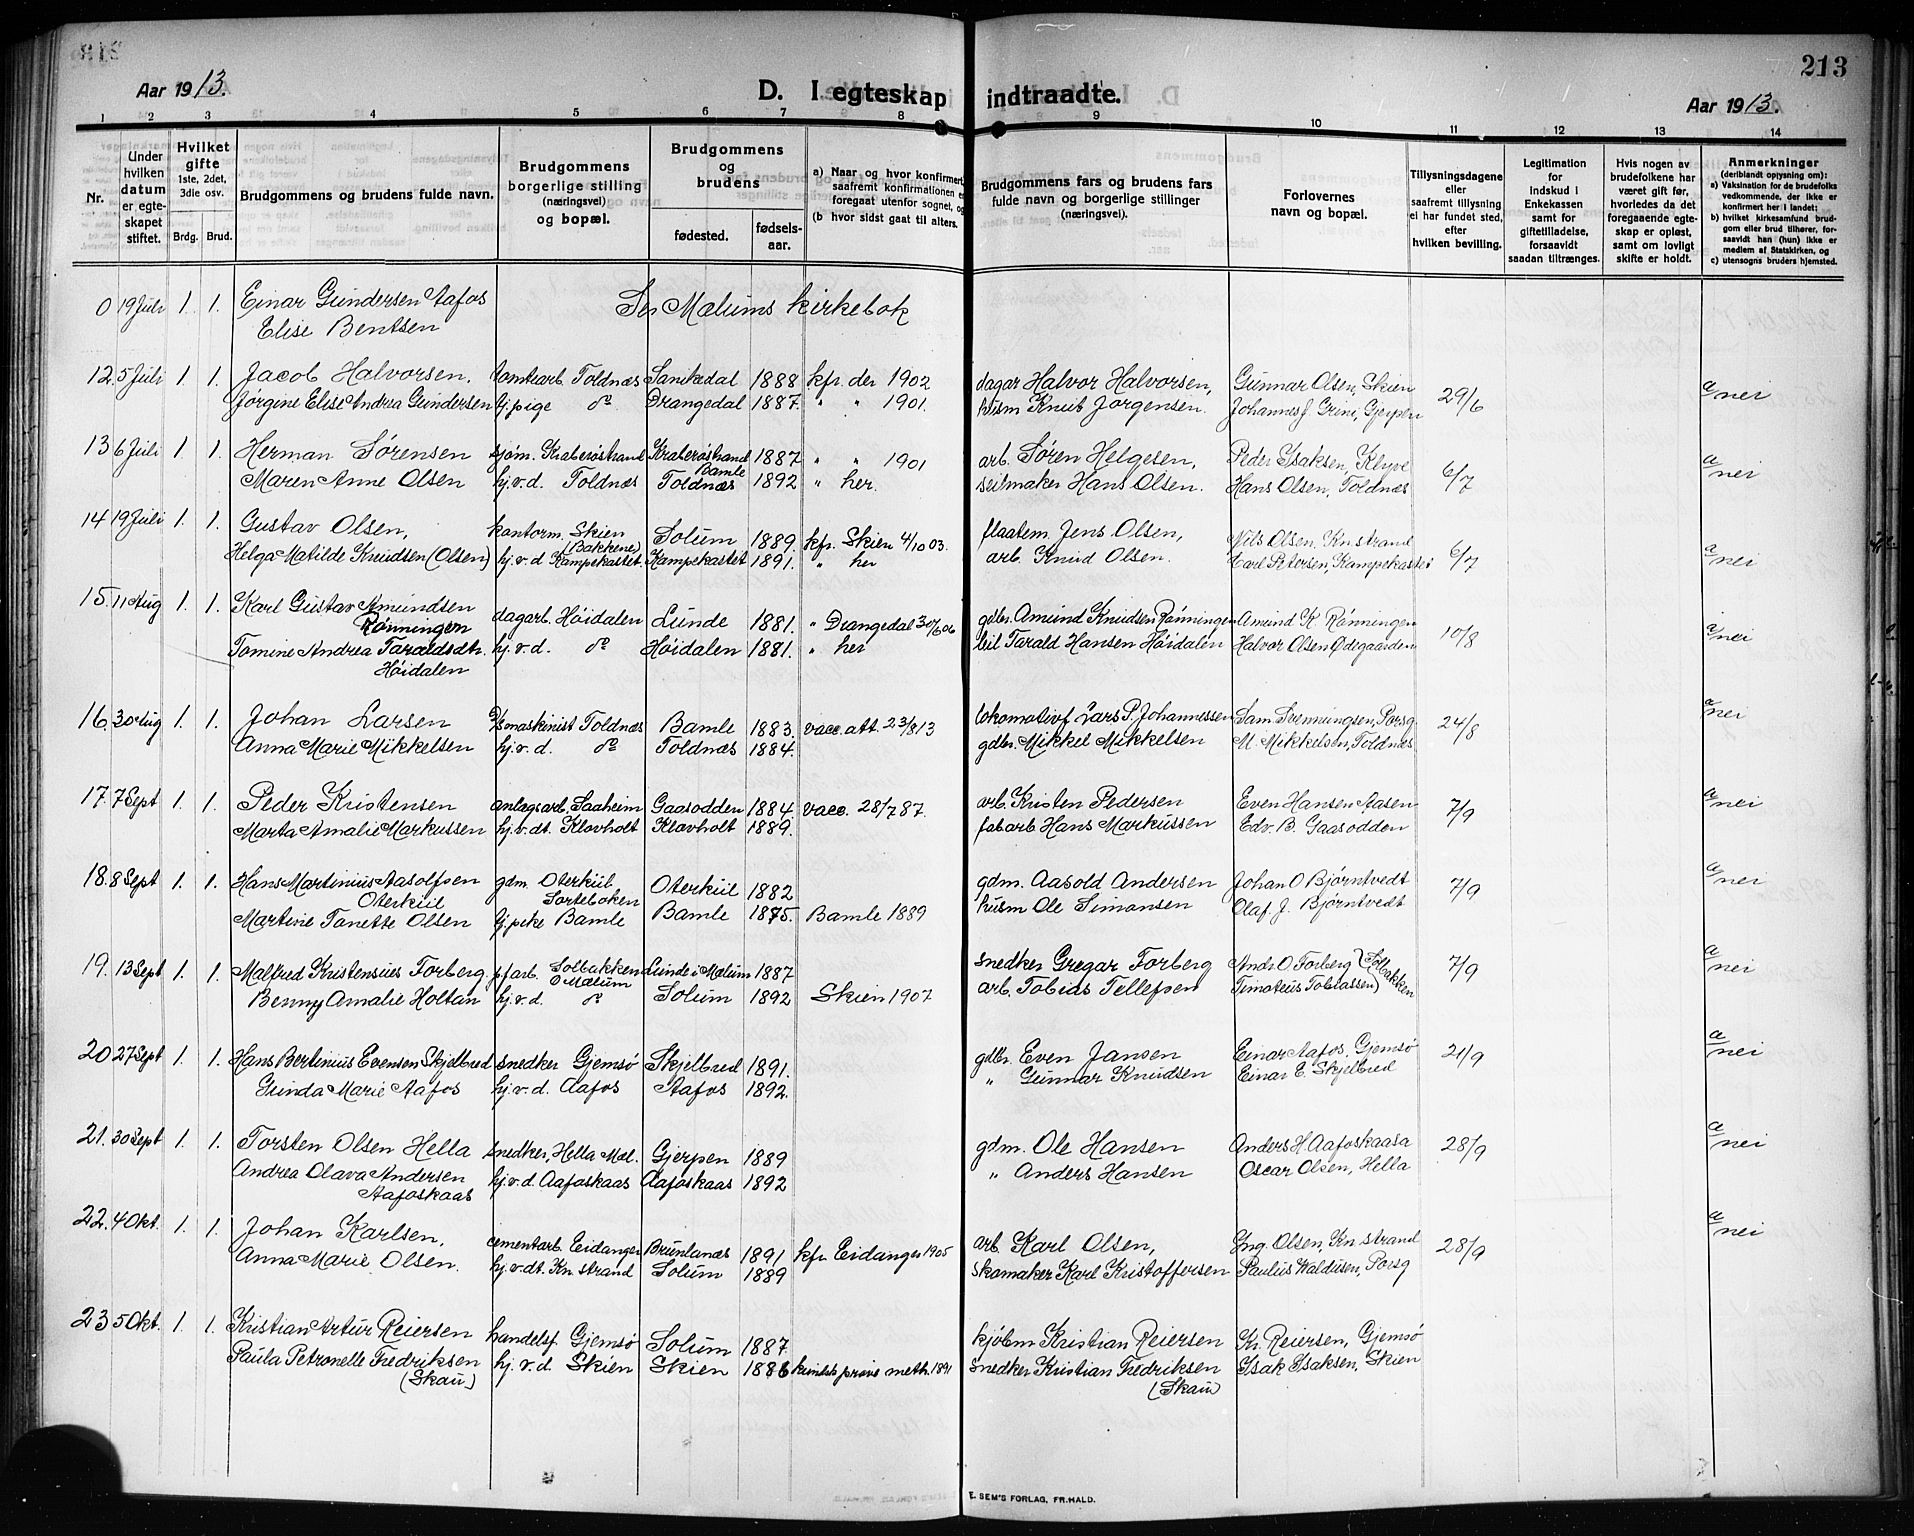 213
Aar 1913.
D. I egteskap indtraadte.
Aar 1913.
1 2 3 4 5 6 7 8 9 10 11 12 13 14
Nr.
Under hvilken datum er egteskapet stiftet.
Hvilket gifte 1ste, 2det, 3die osv.
Brdg. Brud.
Brudgommens og brudens fulde navn.
Brudgommens borgerlige stilling (næringsvei) og bopæl.
Brudgommens og brudens
fødested. fødselsaar.
a) Naar og hvor konfirmert, saafremt konfirmationen er foregaat utenfor sognet, og
(b hvor sidst gaat til alters.
Brudgommens fars og brudens fars fulde navn og borgerlige stillinger (næringsvei).
Forlovernes navn og bopæl.
Tillysningsdagene eller saafremt tillysning ei har fundet sted, efter hvilken bevilling.
Legitimation for Indskud i Enkekassen samt for giftetilladelse, forsaavidt saadan tiltrænges.
Hvis nogen av brudefolkene har været gift før, hvorledes da det foregaaende egteskap er opløst, samt om lovligt skifte er holdt.
Anmerkninger (deriblandt opysning om):
a) Vaksination for de brudefolks vedkommende, der ikke er konfirmert her i landet;
b) hvilket kirkesamfund brudgom eller brud tilhører, forsaavidt han (hun) ikke er medlem af Statskirken, og
c) utensogns bruders hjemsted.
0 19 Juli 1. 1. Einar Gundersen Aafos Se Mælums kirkebok
Elise Bentsen
12. 5 Juli 1. 1. Jacob Halvorsen, tomtearb. Toldnæs Sanikedal 1888 kfr. der 1902 dagar Halvor Halvorsen, Gunnar Olsen, Skien 29/6 a/nei
Jørgine Elise Andrea Gundersen tj.pige do Drangedal 1887. " " 1901. husm Knut Jørgensen. Johannes J. Grini, Gjerpen
13. 6 Juli 1. 1. Herman Sørensen sjøm. Kraberøstrand Kraberøstrand Bamle 1887 " " 1901 arb. Søren Helgesen, Peder Isaksen, Klyve 6/7 a/nei
Maren Anne Olsen hj.v.d. Toldnæs Toldnæs 1892 " her. seilmaker Hans Olsen. Hans Olsen, Toldnæs
14 19 Juli 1. 1. Gustav Olsen, kontorm. Skien (Bakkene) Solum 1889. kfr. Skien 4/10 03. flaatem. Jens Olsen, Nils Olsen, Kn strand 6/7 a/nei
Helga Matilde Knudsen (Olsen) hj.v.d Kampekastet. Kampekastet 1891. " her arb. Knud Olsen. Carl Petersen, Kampekastet
15. 11 Aug 1. 1. Karl Gustav Amundsen Rønningen dagarb. Høidalen Lunde 1881. " Drangedal 30/6 06 gdbr. Amund Knudsen Rønningen Amund K Rønningen 10/8 a/nei
Tomine Andrea Taraldsdtr. Høidalen hj.v.d. do Høidalen 1881. " her leil Tarald Hansen Høidalen Halvor Olsen Ødegaarden
16. 30 Aug 1. 1. Johan Larsen D/smaskinist Toldnæs Bamle 1883. vacc. att. 23/8 13 lokomotivf Lars P. Johannessen Sam Svennungsen, Porsg 24/8 a/nei
Anna Marie Mikkelsen hj.v.d. do Toldnæs 1884. gdbr. Mikkel Mikkelsen M. Mikkelsen, Toldnæs
17. 7 Sept 1. 1. Peder Kristensen anlagsarb. Saaheim Gaasodden 1884 vacc. 28/7 87. arb. Kristen Pedersen Even Hansen Aasen 7/9 a/nei
Marta Amalie Markussen hj.v.dt. Klovholt Klovholt 1889. fabarb Hans Markussen Edv. B. Gaasodden
18. 8 Sept 1. 1. Hans Martinius Aasolfsen Oterkiil gdm. Oterkiil Sorteboken Oterkiil 1882 gdm. Aasold Andersen Johan O Bjørntvedt 7/9 a/nei
Martine Tonette Olsen tj.pike Bamle Bamle 1875. Bamle 1889 husm Ole Simonsen Olaf J. Bjørntvedt
19. 13 Sept 1. 1. Malfred Kristensius Torberg. pf.arb. Solbakken Mælum Lunde i Mælum 1887 snedker Gregar Torberg Andr. O. Torberg } Solbakken 7/9 a/nei
Benny Amalie Holtan hj.v.d. do Solum 1892 Skien 1907 arb. Tobias Tellefsen Timoteus Tobiassen }
20 27 Sept 1. 1. Hans Bertinius Evensen Skjelbred snedker Gjemsø Skjelbred 1891. gdbr. Even Jansen Einar Aafos, Gjemsø 21/9 a/nei
Gunda Marie Aafos hj.v.d. Aafos Aafos 1892. " Gunnar Knudsen Einar E. Skjelbred
21. 30 Sept 1. 1. Torsten Olsen Hella snedker, Hella Mæl. Gjerpen 1889 gdm. Ole Hansen Anders H. Aafoskaasa 28/9 a/nei
Andrea Olava Andersen Aafoskaas hj.v.d. Aafoskaas Aafoskaas 1892 " Anders Hansen Oscar Olsen, Hella
22. 4 Okt. 1. 1. Johan Karlsen, cementarb. Eidanger Brunlanæs 1891 kfr Eidanger 1905 arb. Karl Olsen, Ing. Olsen, Kn strand 28/9 a/nei
Anna Marie Olsen. hj.v.dt. Kn strand Solum 1889 skomaker Karl Kristoffersen Paulus Waldusen, Porsg
23 5 Okt. 1. 1. Kristian Artur Reiersen handelsf. Gjemsø Solum 1887. kjøbm Kristian Reiersen Kr. Reiersen, Gjemsø
Paula Petronelle Fredriksen (Skau) hj.v.d Skien Skien 1886 kundsk prøve meth. 1891 snedker Kristian Fredriksen (Skau) Isak Isaksen, Skien
E. SEM'S FORLAG, FR.HALD.